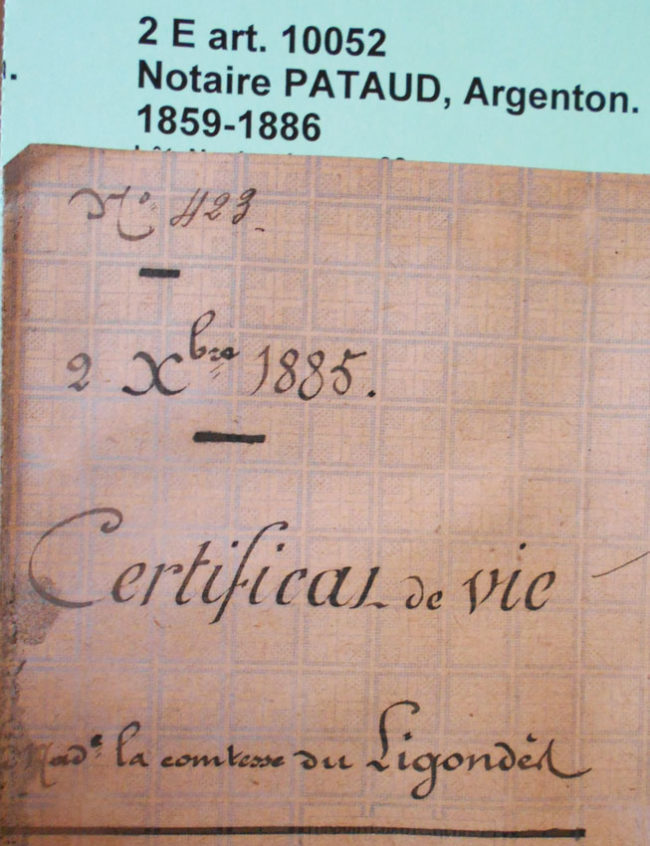 2 E art. 10052
Notaire PATAUD, Argenton.
1859-1886
N° 423.
2 Xbre 1885.
Certificat de vie
Made la comtesse du Ligondès